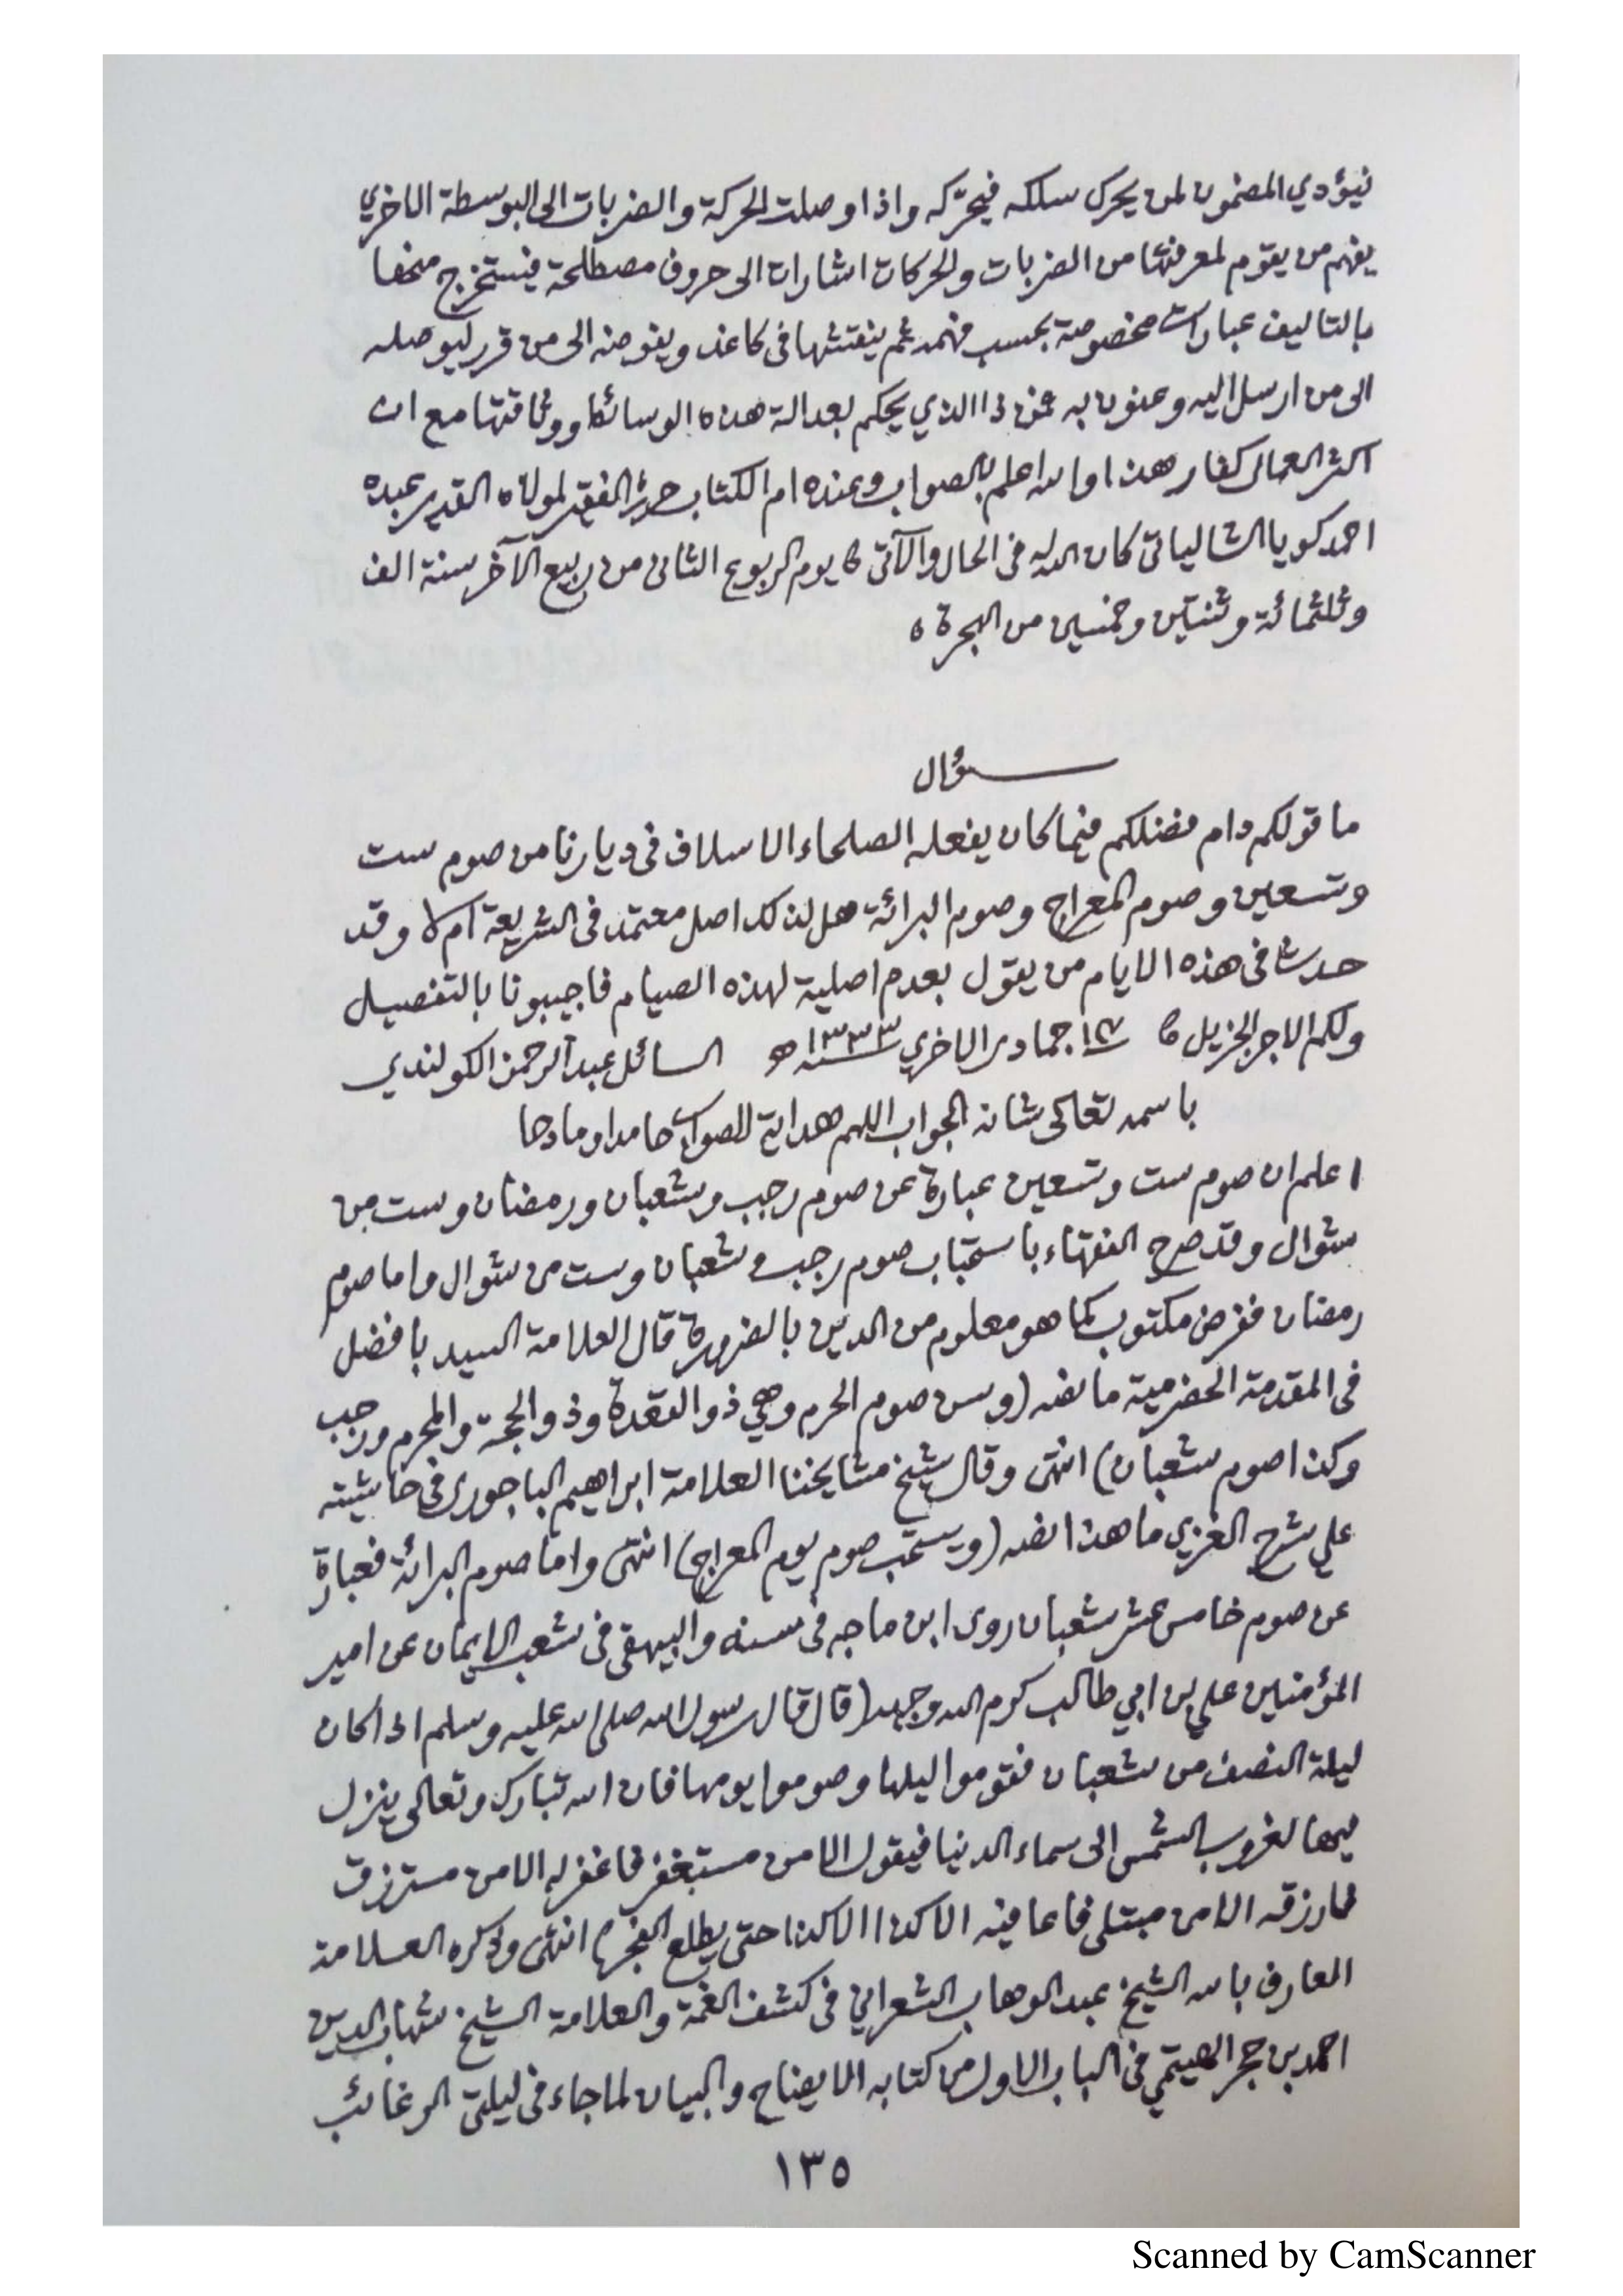 فيؤدي المضمون لمن يحرك سلكه فيحرّكه واذا وصلت الحركة والضربات الى البوسطة الاخري
يفهم من يقوم لمعرفتها من الضربات والحركات اشارات الى حروف مصطلحة فيستخرج منها
بالتاليف عبارات مخصوصة بحسب فهمه ثم ينقشها فى كاغذ ويفوضه الى من قرر ليوصله
الى من ارسل اليه وعنون به فمن ذا الذي يحكم بعدالة هذه الوسائط ووثاقتها مع ان
اكثر العمال كفار هذا والله اعلم بالصواب وعنده ام الكتاب حرره الفقير لمولاه القدير عبده
احمد كويا الشالياتى كان الله له فى الحال والآتى يوم الربوع الثانى من ربيع الآخر سنة الف
وثلثمائة وثنتين وخمسين من الهجرة
سؤال
ما قولكم دام فضلكم فيما كان يفعله الصلحاء الاسلاف فى ديارنا من صوم ست
وتسعين وصوم المعراج وصوم البرائة هل لذلك اصل معتمد فى الشريعة ام لا وقد
حدث فى هذه الايام من يقول بعدم اصلية لهذه الصيام فاجيبونا بالتفصيل
ولكم الاجر الجزيل جمادى الاخري سنة ١٣٣٣ هـ السائل عبد الرحمن الكولندي
باسمه تعالى شانه الجواب اللهم هداية للصواب حامدا ومادحا
اعلم ان صوم ست وتسعين عبارة عن صوم رجب وشعبان ورمضان وست من
شوال وقد صرح الفقهاء باستحباب صوم رجب وشعبان وست من شوال واما صوم
رمضان ففرض مكتوب كما هو معلوم من الدين بالضرورة قال العلامة السيد بافضل
فى المقدمة الحضرمية ما نصه (وسن صوم الحرم وهي ذو القعدة وذو الحجة والمحرم ورجب
وكذا صوم شعبان) انتهى وقال شيخ مشايخنا العلامة ابراهيم الباجورى فى حاشيته
علي شرح الغزي ما هذا نصه (ويستحب صوم يوم المعراج) انتهى واما صوم البرائة فعبارة
عن صوم خامس عشر شعبان روى ابن ماجه فى سننه والبيهقى فى شعب الايمان عن امير
المؤمنين علي بن ابي طالب كرم الله وجهه (قال قال رسول الله صلى الله عليه وسلم اذا كان
ليلة النصف من شعبان فقوموا ليلها وصوموا يومها فان الله تبارك وتعالى ينزل
فيها لغروب الشمس الى سماء الدنيا فيقول الا من مستغفر فاغفر له الا من مسترزق
فارزقه الا من مبتلى فاعافيه الا كذا الا كذا حتى يطلع الفجر) انتهى وذكره العلامة
العارف بالله الشيخ عبد الوهاب الشعراني فى كشف الغمة والعلامة الشيخ شهاب الدين
احمد بن حجر الهيتمي فى الباب الاول من كتابه الايضاح والبيان لما جاء فى ليلتى الرغائب
١٣٥
Scanned by CamScanner